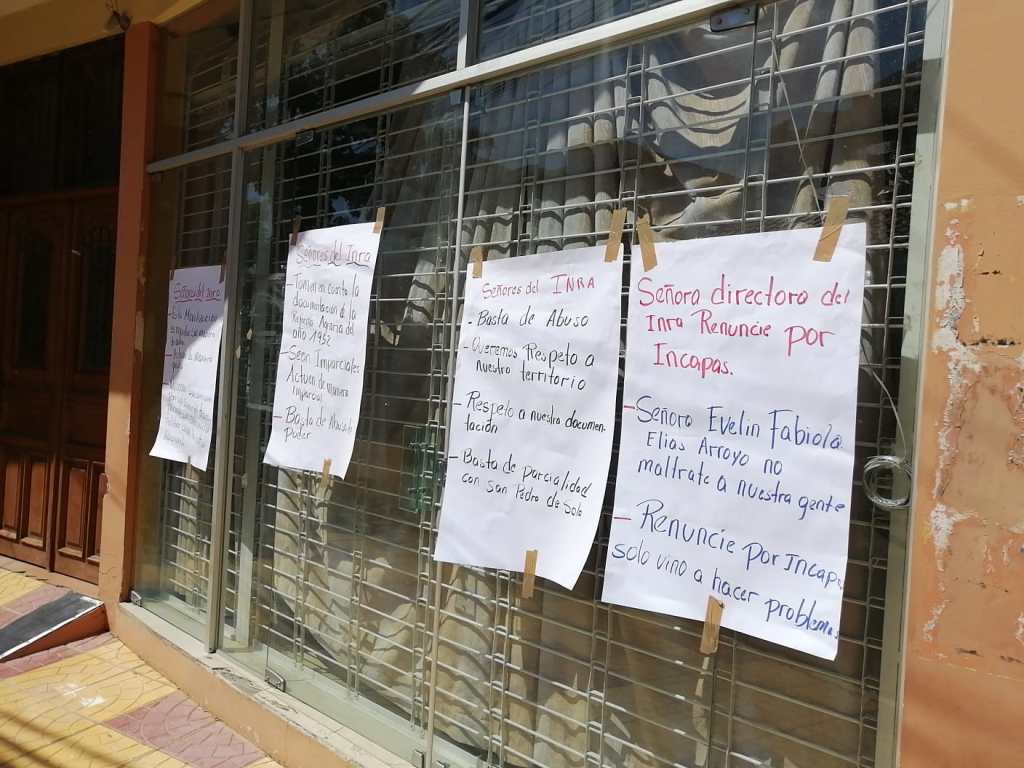 Señores del Inra
Señores del Inra
- Tomen en cuenta la
documentación de la
Reforma Agraria del
año 1952
- Sean Imparciales
Actuen de manera
Imparcial
- Basta de Abuso de
Poder
Señores del INRA
- Basta de Abuso
- Queremos Respeto a
nuestro territorio
- Respeto a nuestra documen
tación
- Basta de parcialidad
con San Pedro de Sola
Señora directora del
Inra Renuncie por
Incapas.
- Señora Evelin Fabiola
Elias Arroyo no
maltrate a nuestra gente
- Renuncie por Incapas
solo vino a hacer problemas